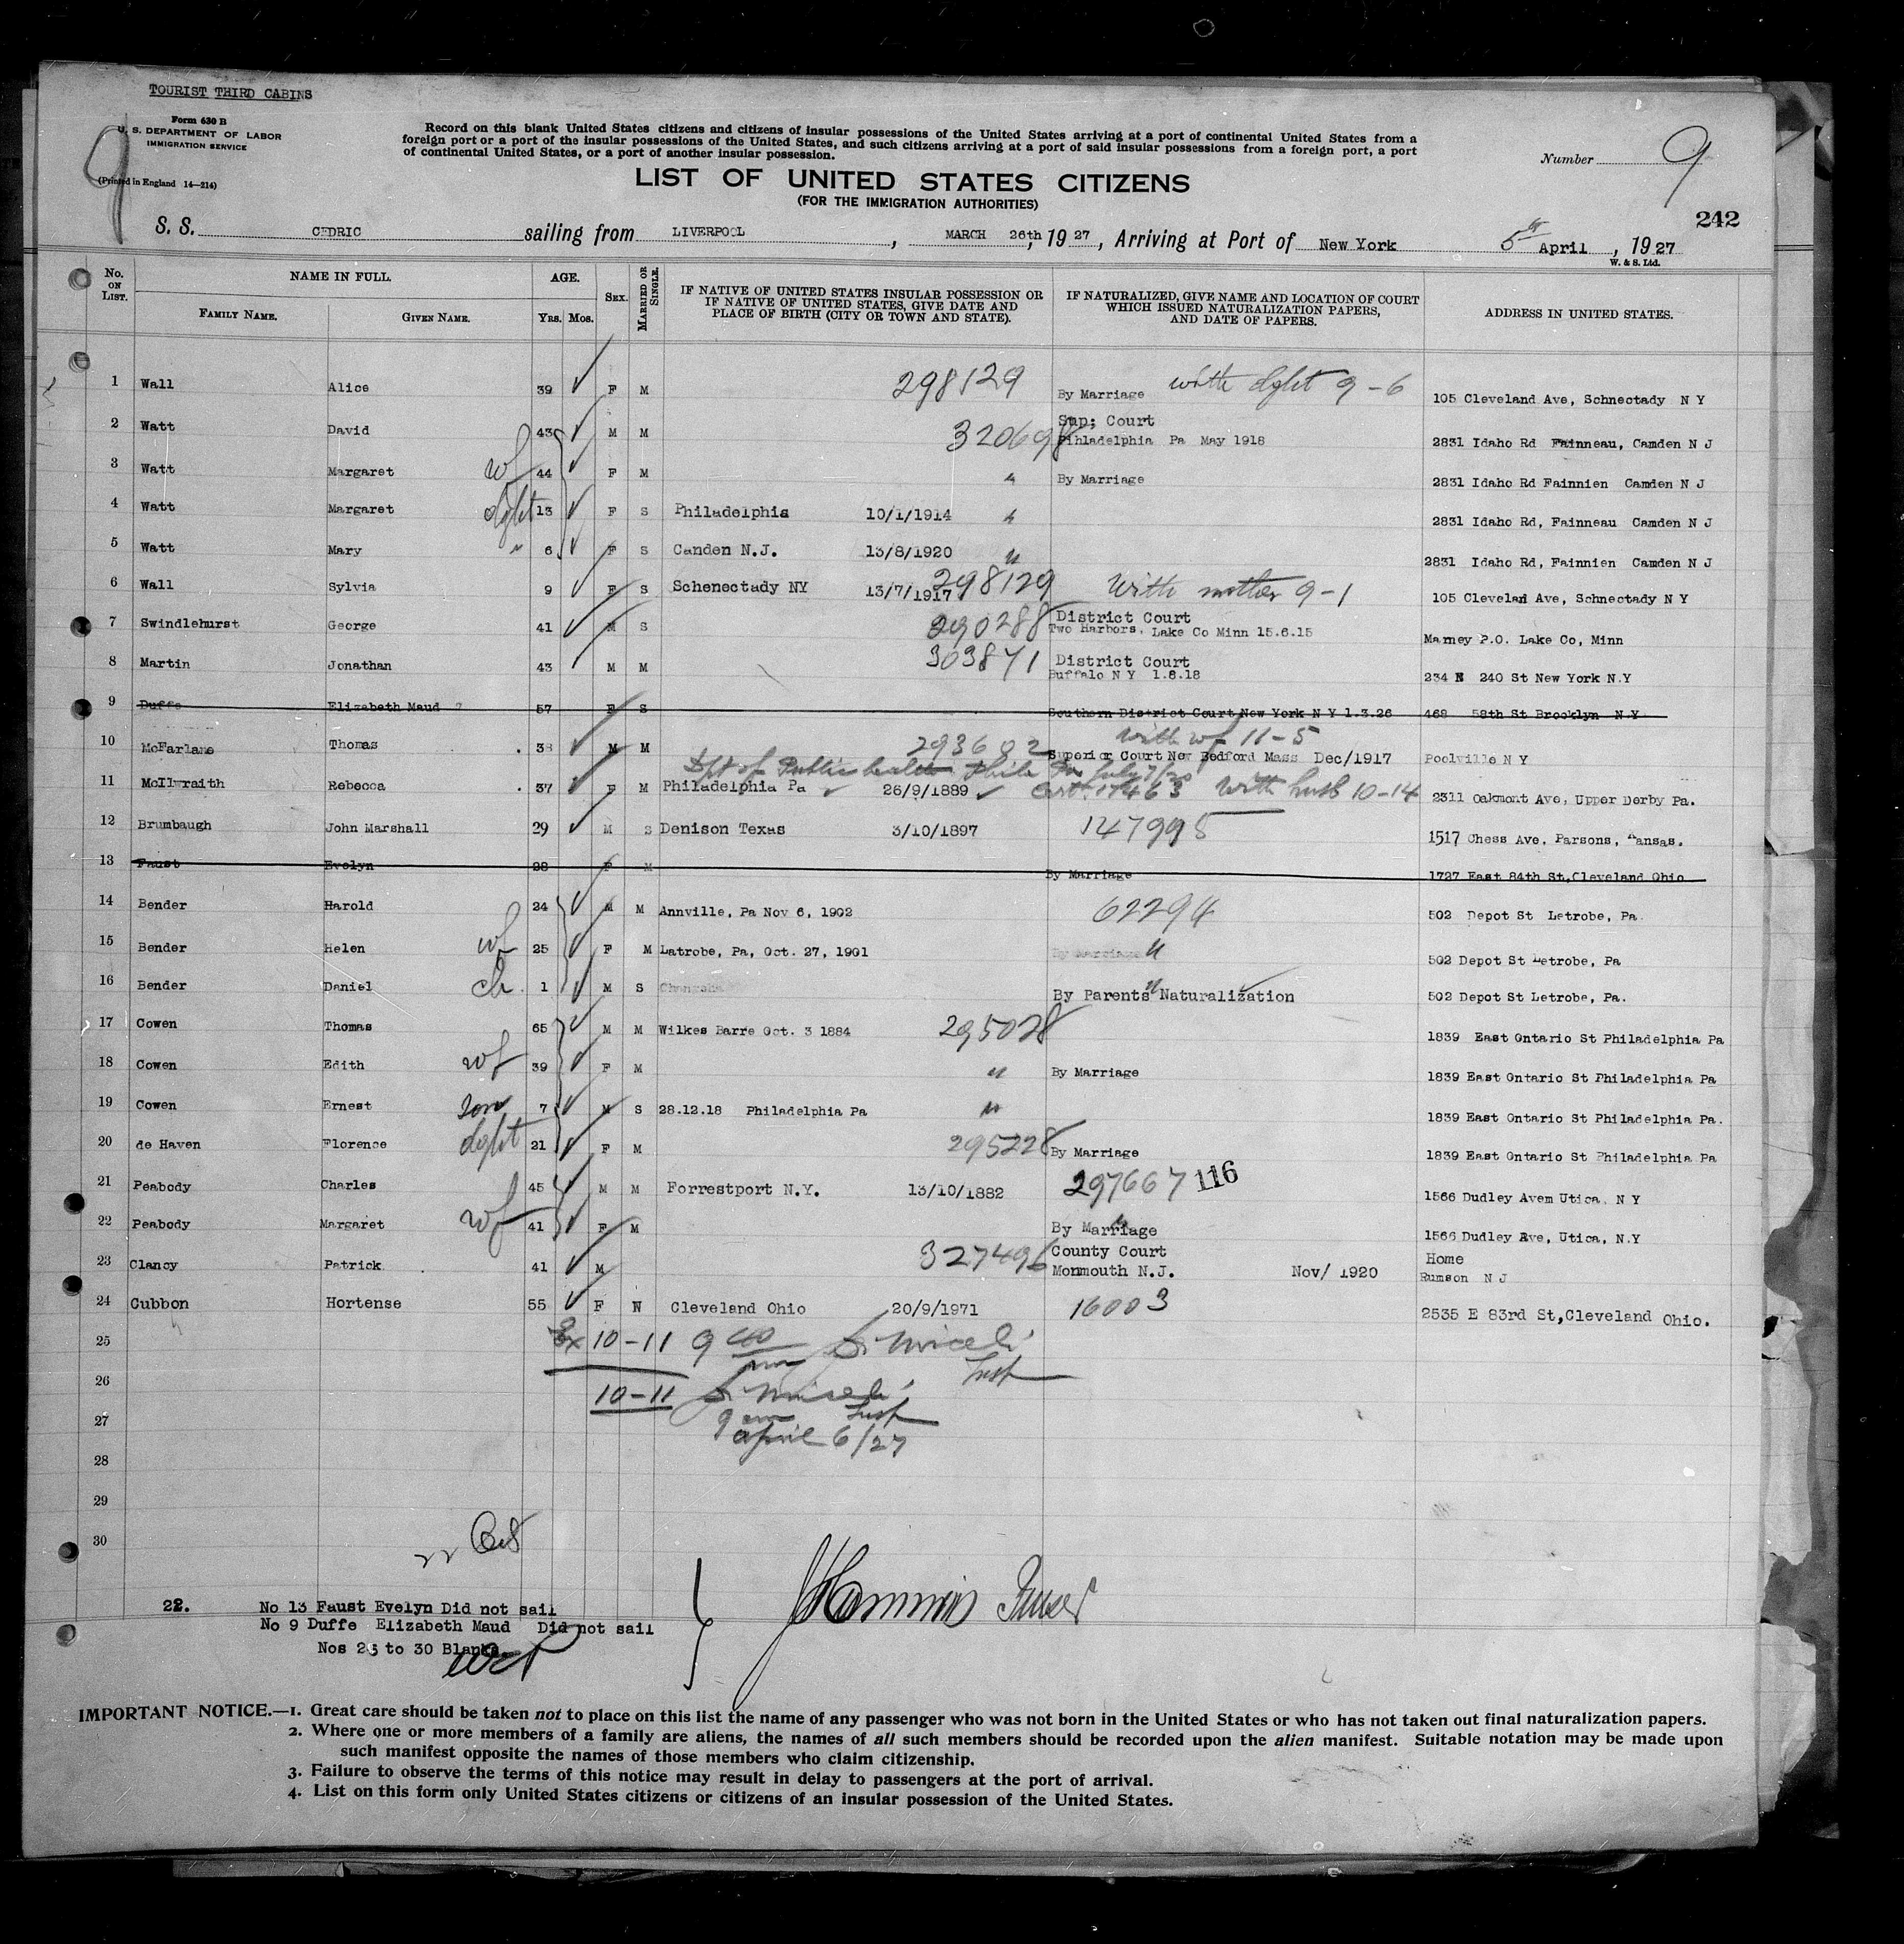 TOURIST THIRD CABINS
Form 630 B
U. S. DEPARTMENT OF LABOR
IMMIGRATION SERVICE
(Printed in England 14—214)
9
Record on this blank United States citizens and citizens of insular possessions of the United States arriving at a port of continental United States from a
foreign port or a port of the insular possessions of the United States, and such citizens arriving at a port of said insular possessions from a foreign port, a port
of continental United States, or a port of another insular possession.
Number 9
LIST OF UNITED STATES CITIZENS
(FOR THE IMMIGRATION AUTHORITIES)
242
S. S. CEDRIC sailing from LIVERPOOL, MARCH 26th, 1927, Arriving at Port of New York 5th April, 1927
W. & S. Ltd.
No. ON LIST. NAME IN FULL. FAMILY NAME. GIVEN NAME. AGE. Yrs. Mos. SEX. MARRIED OR SINGLE. IF NATIVE OF UNITED STATES INSULAR POSSESSION OR IF NATIVE OF UNITED STATES, GIVE DATE AND PLACE OF BIRTH (CITY OR TOWN AND STATE). IF NATURALIZED, GIVE NAME AND LOCATION OF COURT WHICH ISSUED NATURALIZATION PAPERS, AND DATE OF PAPERS. ADDRESS IN UNITED STATES.
1 Wall Alice 39 F M 298129 By Marriage with dght 9-6 105 Cleveland Ave, Schnectady N Y
2 Watt David 43 M M 320698 Sup; Court Pihladelphia Pa May 1918 2831 Idaho Rd Fainneau, Camden N J
3 Watt Margaret wf 44 F M " By Marriage 2831 Idaho Rd Fainnien Camden N J
4 Watt Margaret dght 13 F S Philadelphia 10/1/1914 " 2831 Idaho Rd, Fainneau Camden N J
5 Watt Mary " 6 F S Canden N.J. 13/8/1920 " 2831 Idaho Rd, Fainnien Camden N J
6 Wall Sylvia 9 F S Schenectady NY 13/7/1917 298129 With mother 9-1 105 Clevelan Ave, Schnectady N Y
7 Swindlehurst George 41 M S 290288 District Court Two Harbors, Lake Co Minn 15.6.15 Marney P.O. Lake Co, Minn
8 Martin Jonathan 43 M M 303871 District Court Buffalo N Y 1.8.18 234 N 240 St New York N.Y
9 Duffe Elizabeth Maud 57 F S Southern District Court New York N Y 1.3.26 468 58th St Brooklyn N.Y
10 McFarlane Thomas 38 M M 293602 with wf 11-5 Superior Court New Bedford Mass Dec/1917 Poolville N Y
Dpt of Public health Phila Pa July 7/20
11 McIlwraith Rebecca 37 F M Philadelphia Pa 26/9/1889 Cert. 17463 With husb 10-14 2311 Oakmont Ave, Upper Derby Pa.
12 Brumbaugh John Marshall 29 M S Denison Texas 3/10/1897 147995 1517 Chess Ave, Parsons, Kansas.
13 Faust Evelyn 28 F M By Marriage 1727 East 84th St, Cleveland Ohio
14 Bender Harold 24 M M Annville, Pa Nov 6, 1902 62294 502 Depot St Letrobe, Pa.
15 Bender Helen wf 25 F M Latrobe, Pa, Oct. 27, 1901 By Marriage " 502 Depot St Letrobe, Pa
16 Bender Daniel ch. 1 M S By Parents Naturalization " 502 Depot St Letrobe, Pa.
17 Cowen Thomas 65 M M Wilkes Barre Oct. 3 1884 295028 1839 East Ontario St Philadelphia Pa
18 Cowen Edith wf 39 F M " By Marriage 1839 East Ontario St Philadelphia Pa
19 Cowen Ernest son 7 M S 28.12.18 Philadelphia Pa " 1839 East Ontario St Philadelphia Pa.
20 de Haven Florence dght 21 F M 295228 By Marriage 1839 East Ontario St Philadelphia Pa
21 Peabody Charles 45 M M Forrestport N.Y. 13/10/1882 297667 116 1566 Dudley Avem Utica. N Y
22 Peabody Margaret wf 41 F M By Marriage " 1566 Dudley Ave, Utica, N.Y
23 Clancy Patrick 41 M 327496 County Court Monmouth N.J. Nov/ 1920 Home Rumson N J
24 Cubbon Hortense 55 F N Cleveland Ohio 20/9/1971 16003 2535 E 83rd St, Cleveland Ohio.
25 10-11 9 S. Miceli Insp
26 10-11 S. Miceli
27 9 am Insp
April 6/27
28
29
30
22.
No 13 Faust Evelyn Did not sail
No 9 Duffe Elizabeth Maud Did not sail
Nos 25 to 30 Blanks.
IMPORTANT NOTICE.—1. Great care should be taken not to place on this list the name of any passenger who was not born in the United States or who has not taken out final naturalization papers.
2. Where one or more members of a family are aliens, the names of all such members should be recorded upon the alien manifest. Suitable notation may be made upon
such manifest opposite the names of those members who claim citizenship.
3. Failure to observe the terms of this notice may result in delay to passengers at the port of arrival.
4. List on this form only United States citizens or citizens of an insular possession of the United States.